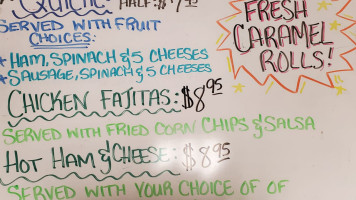 Quiche HALF: $7
SERVED WITH FRUIT
CHOICES:
+ HAM, SPINACH & 5 CHEESES
+ SAUSAGE, SPINACH & 5 CHEESES
FRESH
CARAMEL
ROLLS!
CHICKEN FAJITAS: $8.95
SERVED WITH FRIED CORN CHIPS & SALSA
HOT HAM & CHEESE: $8.95
SERVED WITH YOUR CHOICE OF OF